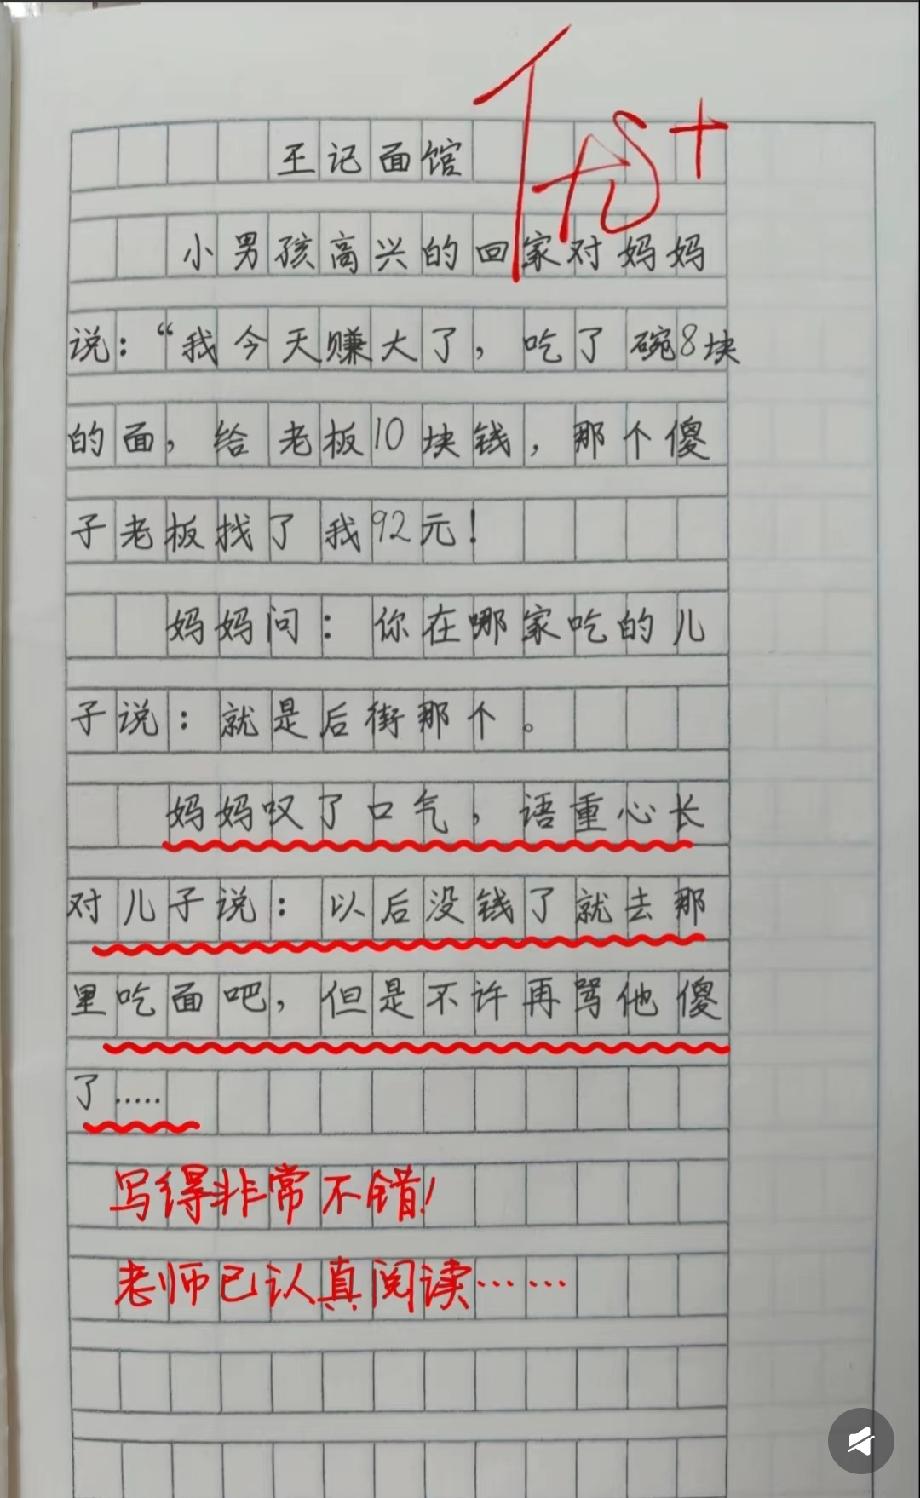 王记面馆
优+
小男孩高兴的回家对妈妈
说：“我今天赚大了，吃了碗8块
的面，给老板10块钱，那个傻
子老板找了我92元！
妈妈问：你在哪家吃的儿
子说：就是后街那个。
妈妈叹了口气，语重心长
对儿子说：以后没钱了就去那
里吃面吧，但是不许再骂他傻
了.....
写得非常不错！
老师已认真阅读……